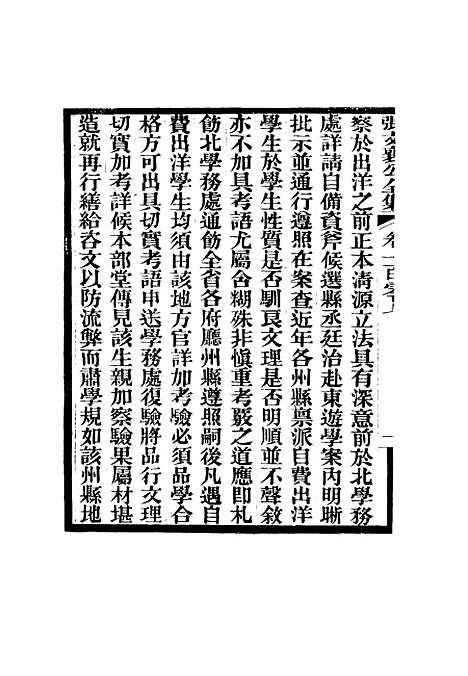 張文襄公全集 卷一百零 一
察於出洋之前正本清源立法具有深意前於北學務
處詳請自備資斧候選縣丞廷治赴東遊學案內明晰
批示並通行遵照在案查近年各州縣禀派自費出洋
學生於學生性質是否馴良文理是否明順並不聲敘
亦不加具考語尤屬含糊殊非慎重考覈之道應即札
飭北學務處通飭全省各府廳州縣遵照嗣後凡遇自
費出洋學生均須由該地方官詳加考驗必須品學合
格方可出具切實考語申送學務處復驗將品行文理
切實加考詳候本部堂傳見該生親加察驗果屬材堪
造就再行繕給咨文以防流弊而肅學規如該州縣地